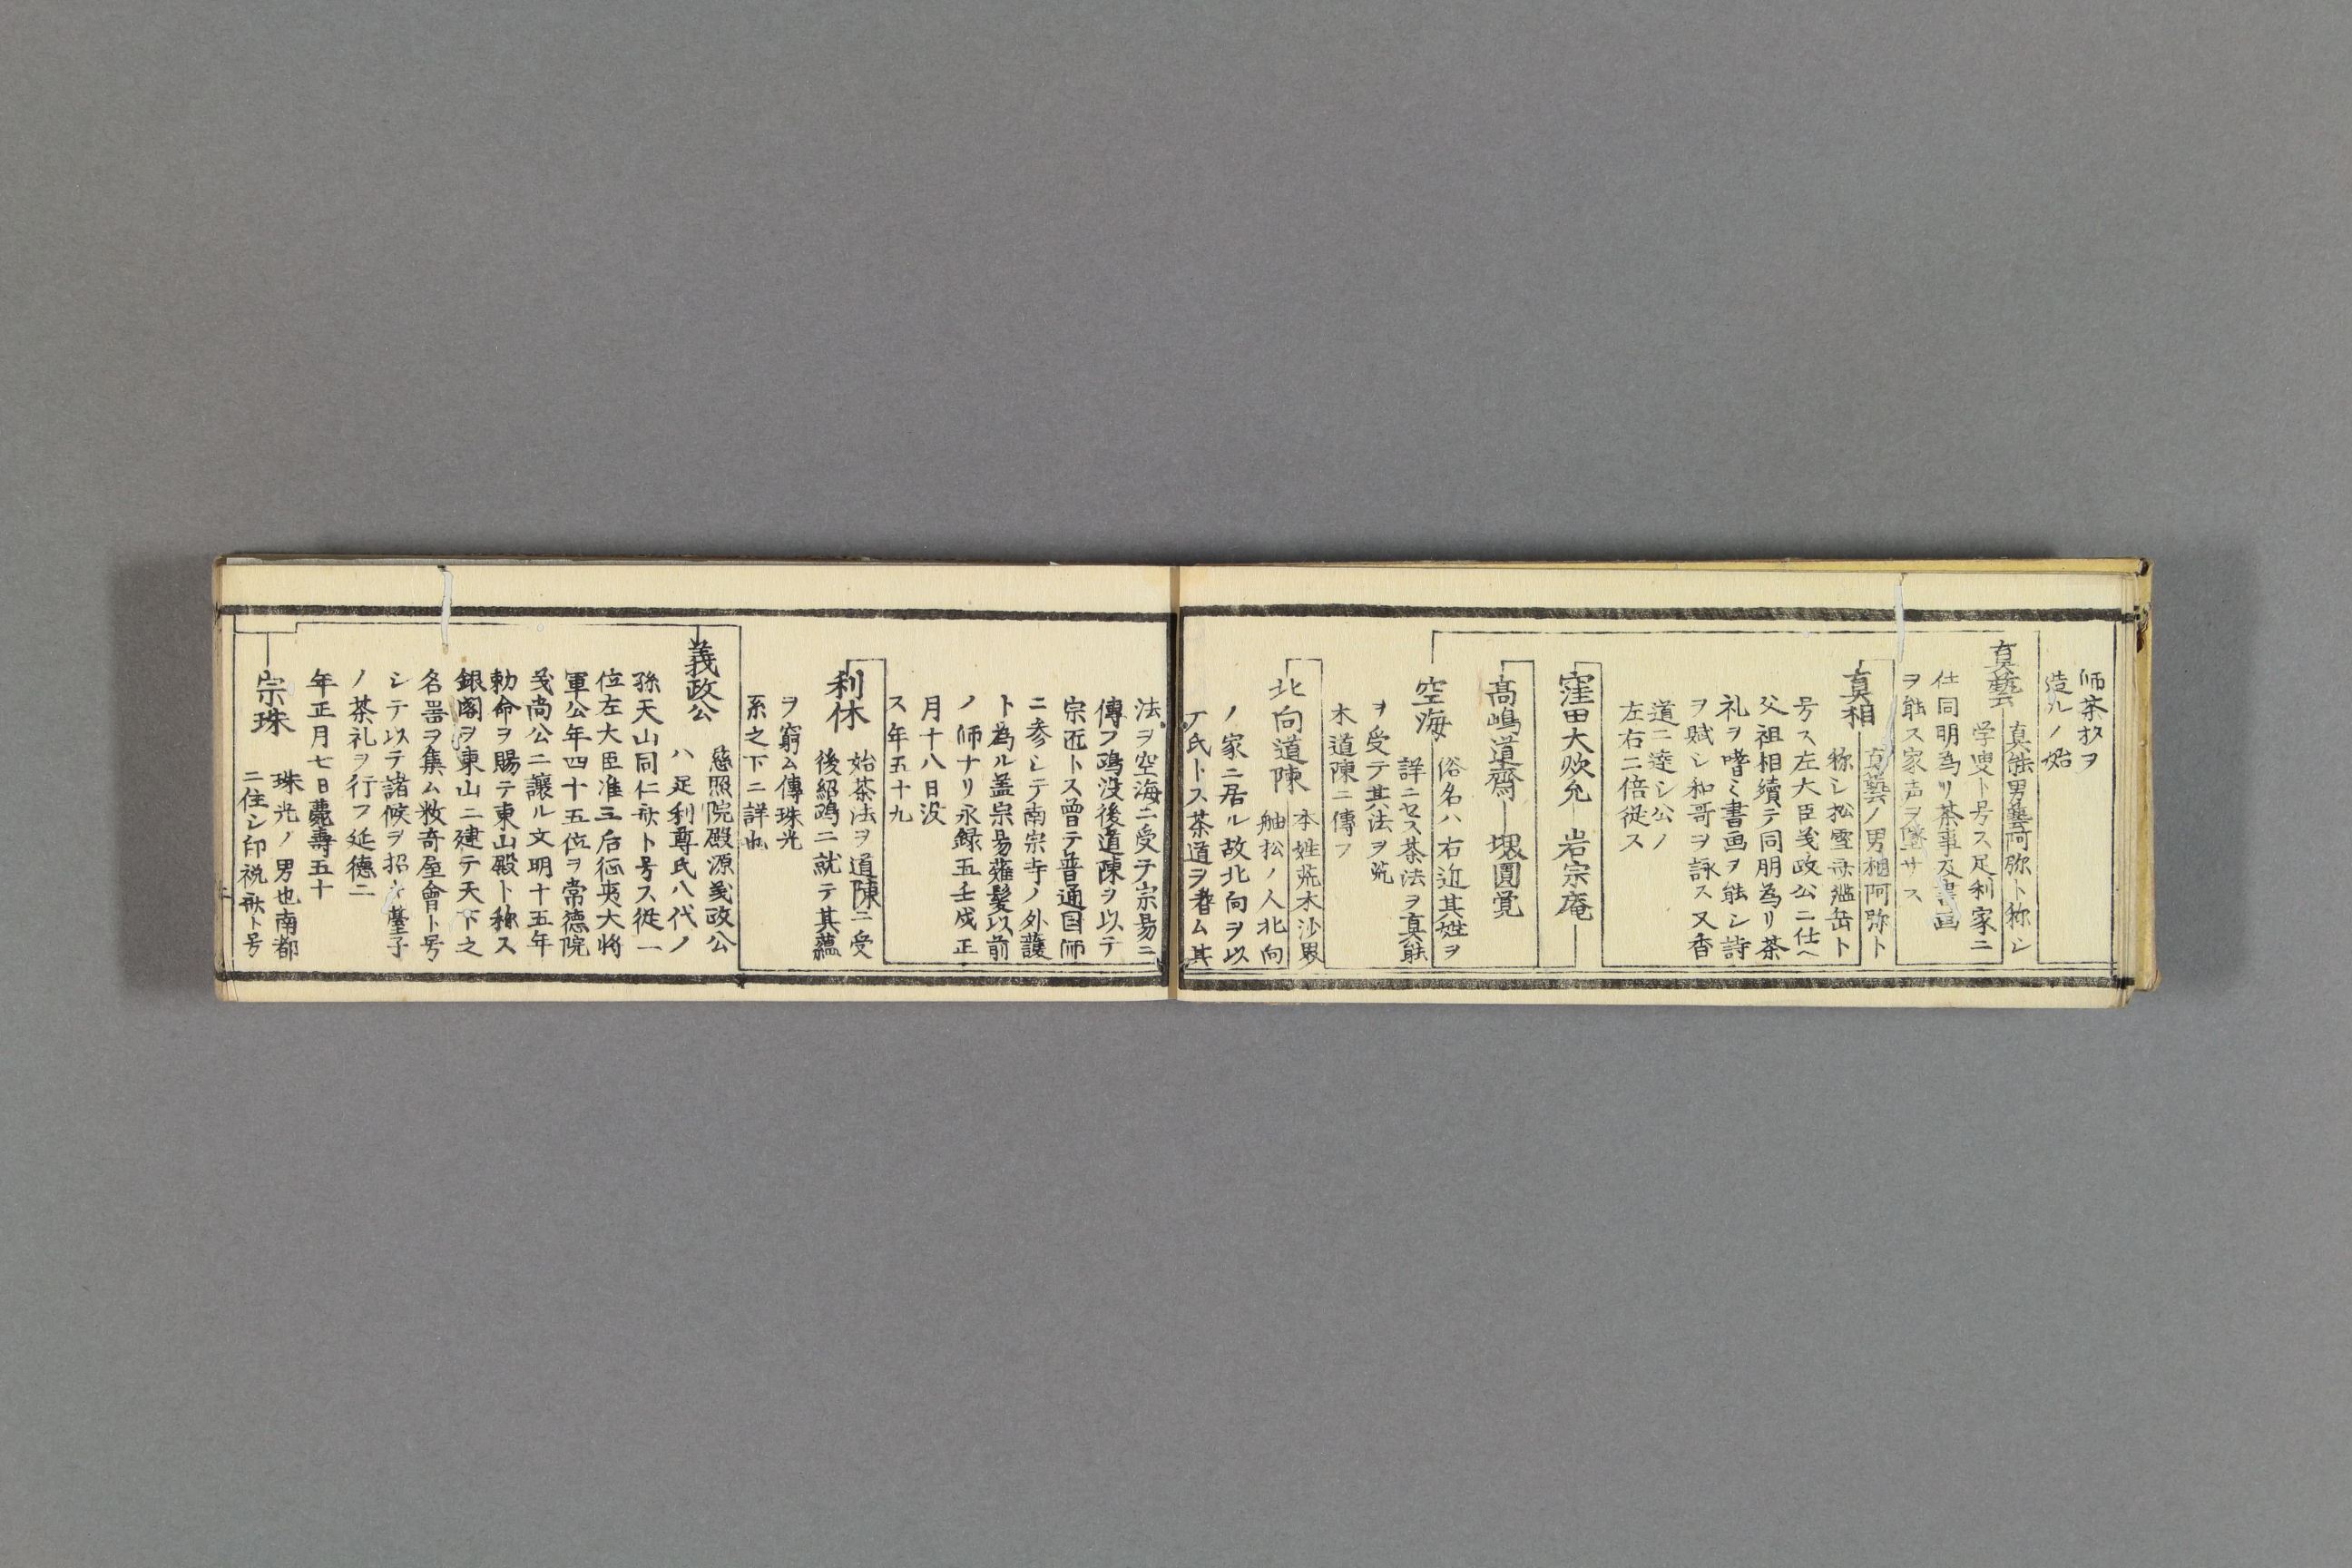 師茶杓ヲ
造ルノ始
真藝
真能男藝阿弥ト称シ
学叟ト号ス足利家ニ
仕同明為リ茶事及書画
ヲ能ス家声ヲ墜サス
真相
真藝ノ男相阿弥ト
称シ松雪斎鑑岳ト
号ス左大臣義政公ニ仕ヘ
父祖相續テ同朋為リ茶
礼ヲ嗜ミ書画ヲ能シ詩
ヲ賦シ和哥ヲ詠ス又香
道ニ達シ公ノ
左右ニ倍従ス
窪田大炊允
岩宗庵
髙嶋道齋
堺圓覚
空海
俗名ハ右近其姓ヲ
詳ニセス茶法ヲ真能
ヲ受テ其法ヲ荒
木道陳ニ傳フ
北向道陳
本姓荒木沙界
舳松ノ人北向
ノ家ニ居ル故北向ヲ以
テ氏トス茶道ヲ耆ム其
法ヲ空海ニ受テ宗易ニ
傳フ鴎没後道陳ヲ以テ
宗匠トス曽テ普通国師
ニ参シテ南宗寺ノ外護
ト為ル蓋宗易薙髪以前
ノ師ナリ永録五壬戌正
月十八日没
ス年五十九
利休
始茶法ヲ道陳ニ受
後紹鴎ニ就テ其蘊
ヲ窮ム傳珠光
系之下ニ詳也
義政公
慈照院殿源義政公
ハ足利尊氏八代ノ
孫天山同仁斎ト号ス従一
位左大臣准三后征夷大将
軍公年四十五位ヲ常徳院
義尚公ニ譲ル文明十五年
勅命ヲ賜テ東山殿ト称ス
銀閣ヲ東山ニ建テ天下之
名噐ヲ集ム数奇屋會ト号
シテ以テ諸候ヲ招キ臺子
ノ茶礼ヲ行フ延德二
年正月七日薨壽五十
宗珠
珠光ノ男也南都
ニ住シ印祝斎ト号